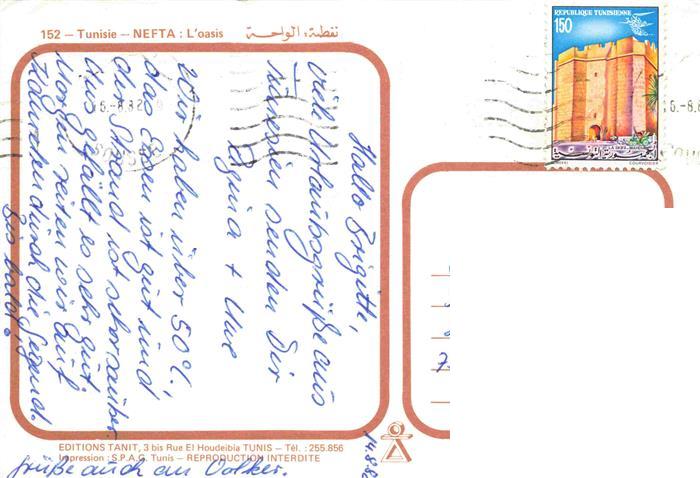 152 – Tunisie – NEFTA : L'oasis
نفطة: الواحة
REPUBLIQUE TUNISIENNE
150
COURVOISIER
-8.82
Hallo Brigitte,
viele Urlaubsgrüße aus
Tunesien senden Dir
+ Uwe
Wir haben über 50°C,
das Essen ist gut und
der Strand ist sehr sauber.
Uns gefällt es sehr gut.
Morgen reiten wir auf
durch die Gegend.
Bis bald!
Grüße auch an Volker.
14.8.82
EDITIONS TANIT, 3 bis Rue El Houdeibia TUNIS – Tél. : 255.856
Impression : S.P.A.G. Tunis – REPRODUCTION INTERDITE